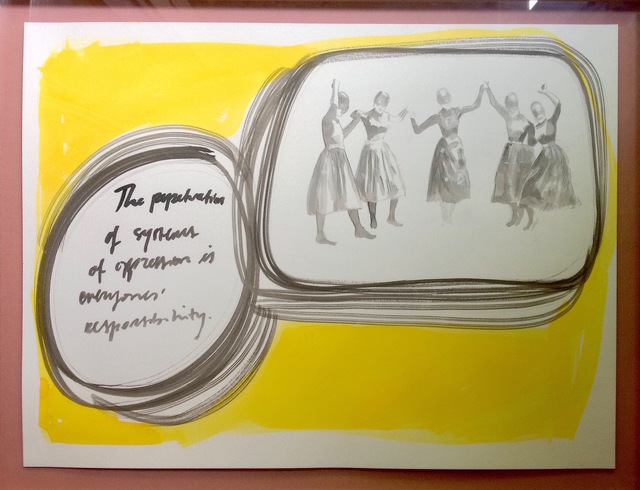 The perpetuation
of systems
of oppression is
everyones'
responsibility.